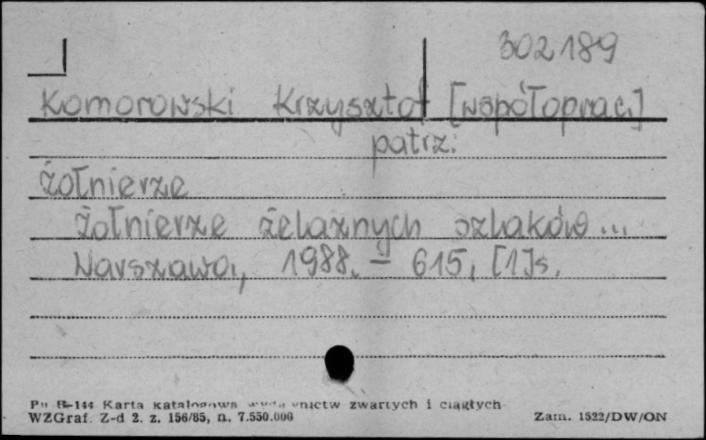 302189
Komorowski Krzysztof [współoprac.]
patrz:
Żołnierze
Żołnierze żelaznych szlaków...
Warszawa, 1988. — 615, [1]s.
Pu B-144 Karta katalogowa zwartych i ciągłych
WZGraf. Z-d 2. z. 156/85, n. 7.550.000 Zam. 1522/DW/ON